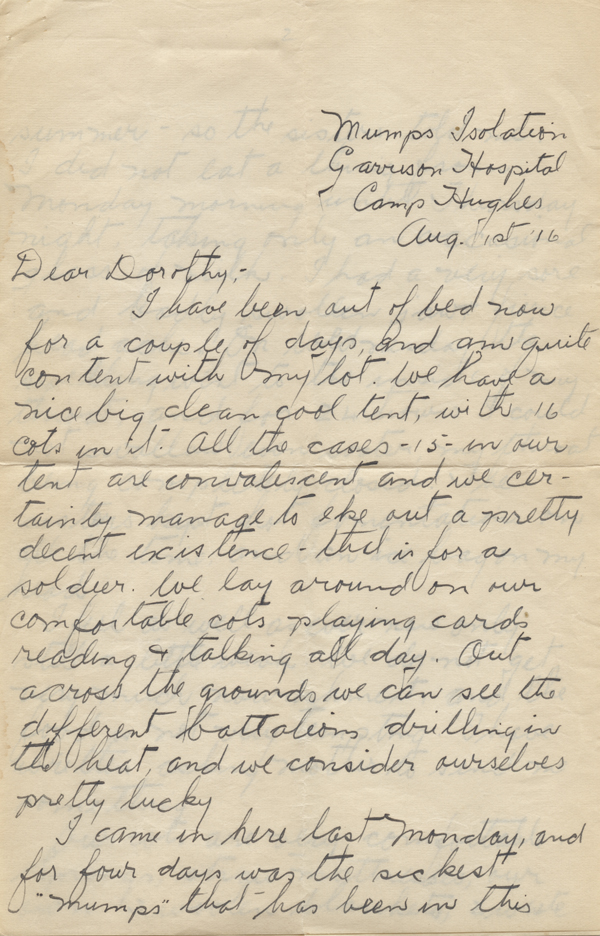 Mumps Isolation
Garrison Hospital
Camp Hughes
Aug. 1st '16
Dear Dorothy,-
I have been out of bed now
for a couple of days, and am quite
content with my lot. We have a
nice big clean cool tent, with 16
cots in it. All the cases -15- in our
tent are convalescent and we cer-
tainly manage to eke out a pretty
decent existence - that is for a
soldier. We lay around on our
comfortable cots playing cards
reading & talking all day. Out
across the grounds we can see the
different battalions drilling in
the heat, and we consider ourselves
pretty lucky
I came in here last Monday, and
for four days was the sickest
"mumps" that has been in this